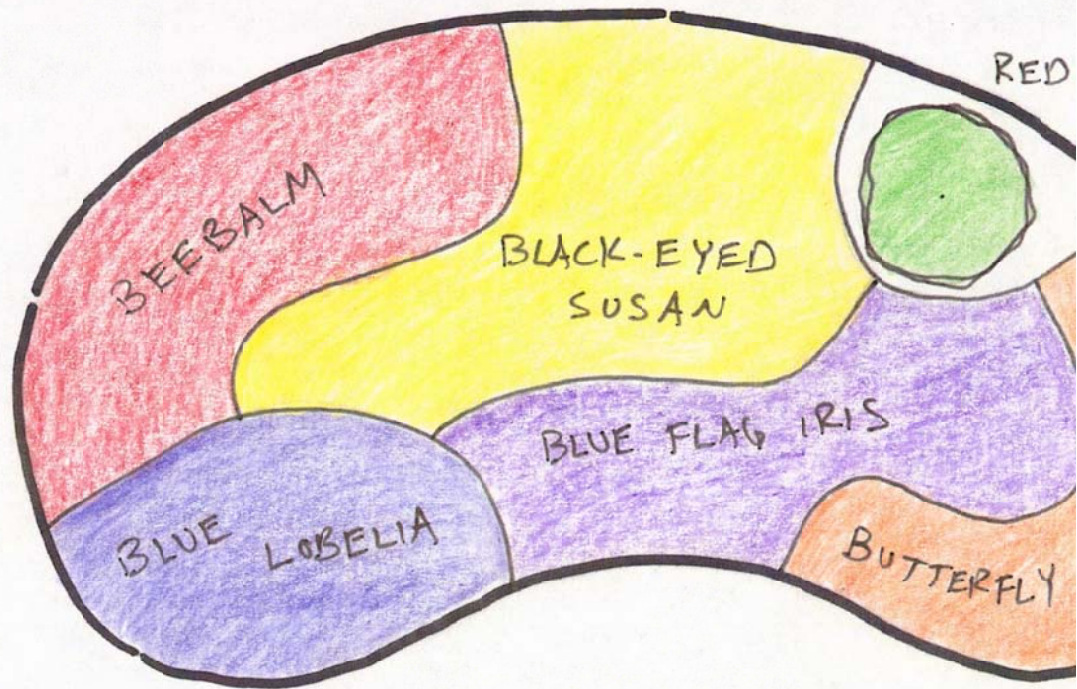 RED
BEEBALM
BLACK-EYED
SUSAN
BLUE FLAG IRIS
BLUE LOBELIA
BUTTERFLY